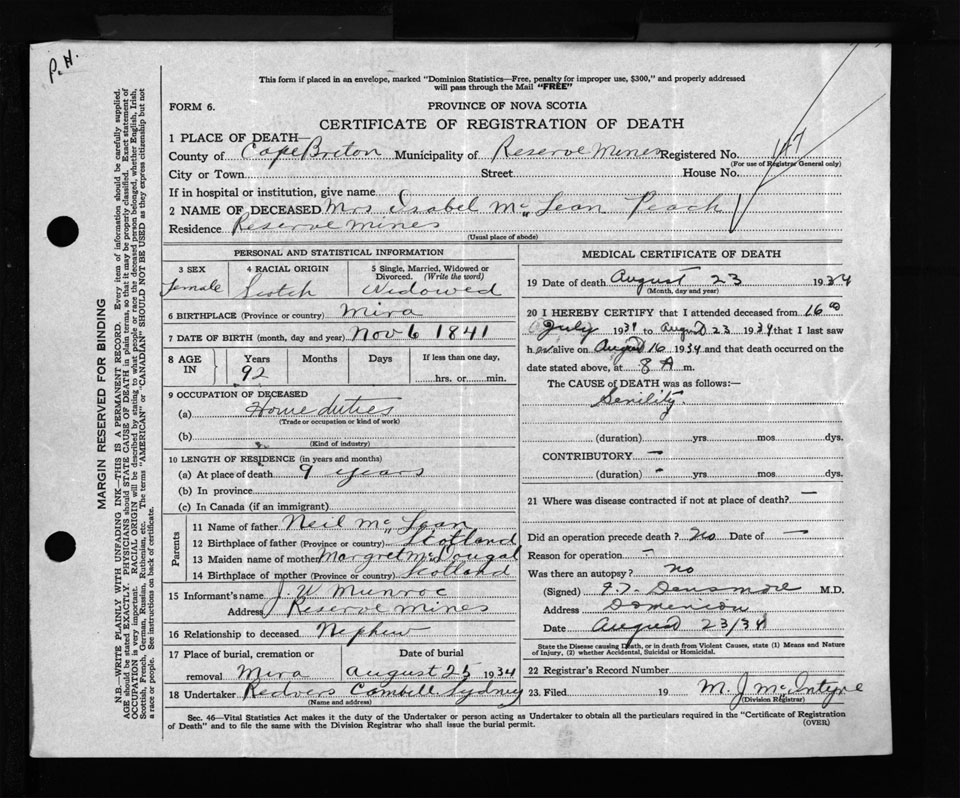 P.H.
This form if placed in an envelope, marked "Dominion Statistics—Free, penalty for improper use, $300," and properly addressed
will pass through the Mail "FREE"
FORM 6.
PROVINCE OF NOVA SCOTIA
CERTIFICATE OF REGISTRATION OF DEATH
1 PLACE OF DEATH—
County of Cape Breton Municipality of Reserve Mines Registered No. 147
(For use of Registrar General only)
City or Town Street House No.
If in hospital or institution, give name
2 NAME OF DECEASED Mrs Isabel McLean Peach
Residence Reserve Mines
(Usual place of abode)
PERSONAL AND STATISTICAL INFORMATION
3 SEX
Female
4 RACIAL ORIGIN
Scotch
5 Single, Married, Widowed or Divorced. (Write the word)
Widowed
6 BIRTHPLACE (Province or country) Mira
7 DATE OF BIRTH (month, day and year) Nov 6 1841
8 AGE IN
Years
92
Months
Days
If less than one day,
hrs. or min.
9 OCCUPATION OF DECEASED
(a) Home duties
(Trade or occupation or kind of work)
(b)
(Kind of industry)
10 LENGTH OF RESIDENCE (in years and months)
(a) At place of death 9 years
(b) In province
(c) In Canada (if an immigrant)
Parents
11 Name of father Neil McLean
12 Birthplace of father Scotland
13 Maiden name of mother Margret McDougal
14 Birthplace of mother (Province or country) Scotland
15 Informant's name J. W. Munroe
Address Reserve Mines
16 Relationship to deceased Nephew
17 Place of burial, cremation or removal Mira
Date of burial
August 25 1934
18 Undertaker Redvers Cambell Sydney
(Name and address)
MEDICAL CERTIFICATE OF DEATH
19 Date of death August 23 1934
(Month, day and year)
20 I HEREBY CERTIFY that I attended deceased from 16
July 1931 to August 23 1934 that I last saw
her alive on August 16 1934 and that death occurred on the
date stated above, at 8 A m.
The CAUSE of DEATH was as follows:—
Senility.
(duration) yrs. mos. dys.
CONTRIBUTORY —
(duration) - yrs. mos. dys.
21 Where was disease contracted if not at place of death? —
Did an operation precede death? No Date of —
Reason for operation -
Was there an autopsy? no
(Signed) Densmore M.D.
Address Dominion
Date August 23/34
State the Disease causing Death, or in death from Violent Causes, state (1) Means and Nature
of Injury, (2) whether Accidental, Suicidal or Homicidal.
22 Registrar's Record Number
23 Filed 19 M. J. McIntyre
(Division Registrar)
Sec. 46—Vital Statistics Act makes it the duty of the Undertaker or person acting as Undertaker to obtain all the particulars required in the "Certificate of Registration
of Death" and to file the same with the Division Registrar who shall issue the burial permit. (OVER)
MARGIN RESERVED FOR BINDING
N.B.—WRITE PLAINLY WITH UNFADING INK—THIS IS A PERMANENT RECORD. Every item of information should be carefully supplied.
AGE should be stated EXACTLY. PHYSICIANS should STATE CAUSE OF DEATH in plain terms, so that it may be properly classified. Exact statement of
OCCUPATION is very important. RACIAL ORIGIN will be described by stating to what people or race the deceased person belonged, whether English, Irish,
Scottish, French, German, Russian, Ruthenian, etc. The terms "AMERICAN" or "CANADIAN" SHOULD NOT BE USED as they express citizenship but not
a race or people. See instructions on back of certificate.